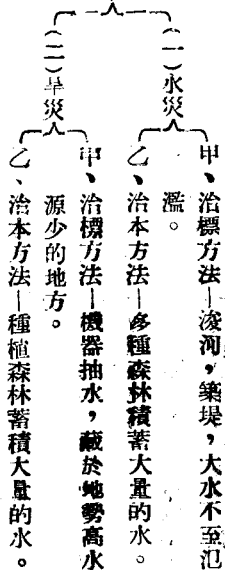 (一)水災
甲、治標方法—浚河,築堤,大水不至氾
濫。
乙、治本方法—多種森林積蓄大量的水。
(二)旱災
甲、治標方法—機器抽水,藏於地勢高水
源少的地方。
乙、治本方法—種植森林蓄積大量的水。